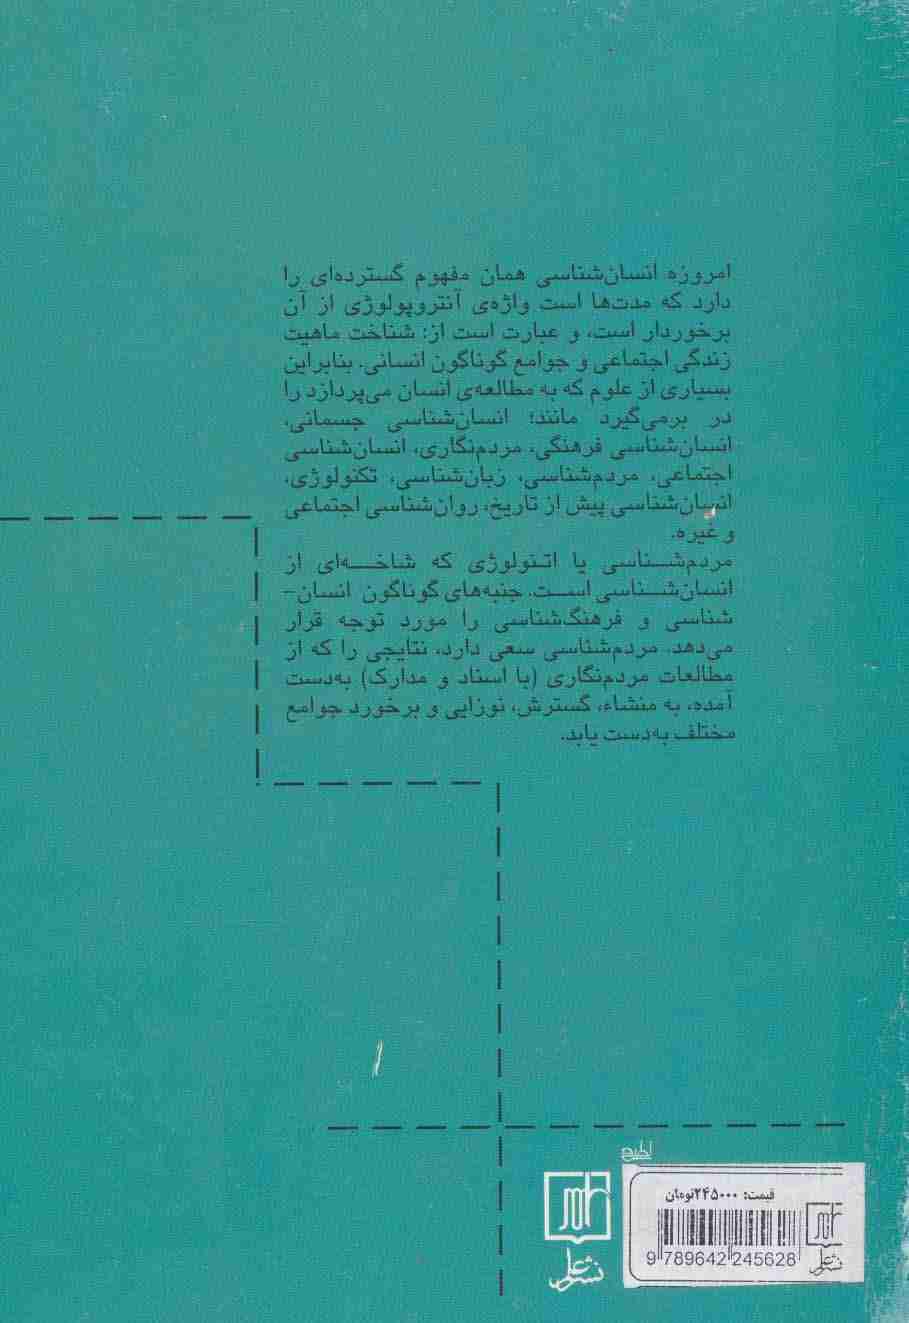 امروزه انسان‌شناسی همان مفهوم گسترده‌ای را
دارد که مدت‌ها است واژه‌ی آنتروپولوژی از آن
برخوردار است، و عبارت است از: شناخت ماهیت
زندگی اجتماعی و جوامع گوناگون انسانی. بنابراین
بسیاری از علوم که به مطالعه‌ی انسان می‌پردازد را
در برمی‌گیرد مانند؛ انسان‌شناسی جسمانی،
انسان‌شناسی فرهنگی، مردم‌نگاری، انسان‌شناسی
اجتماعی، مردم‌شناسی، زبان‌شناسی، تکنولوژی،
انسان‌شناسی پیش از تاریخ، روان‌شناسی اجتماعی
و غیره.
مردم‌شناسی یا اتنولوژی که شاخه‌ای از
انسان‌شناسی است. جنبه‌های گوناگون انسان-
شناسی و فرهنگ‌شناسی را مورد توجه قرار
می‌دهد. مردم‌شناسی سعی دارد، نتایجی را که از
مطالعات مردم‌نگاری (با اسناد و مدارک) به‌دست
آمده، به منشاء، گسترش، نوزایی و برخورد جوامع
مختلف به‌دست یابد.
قیمت: ۲۴۵۰۰۰تومان
9 789642 245628
نشر علم
نشر علم